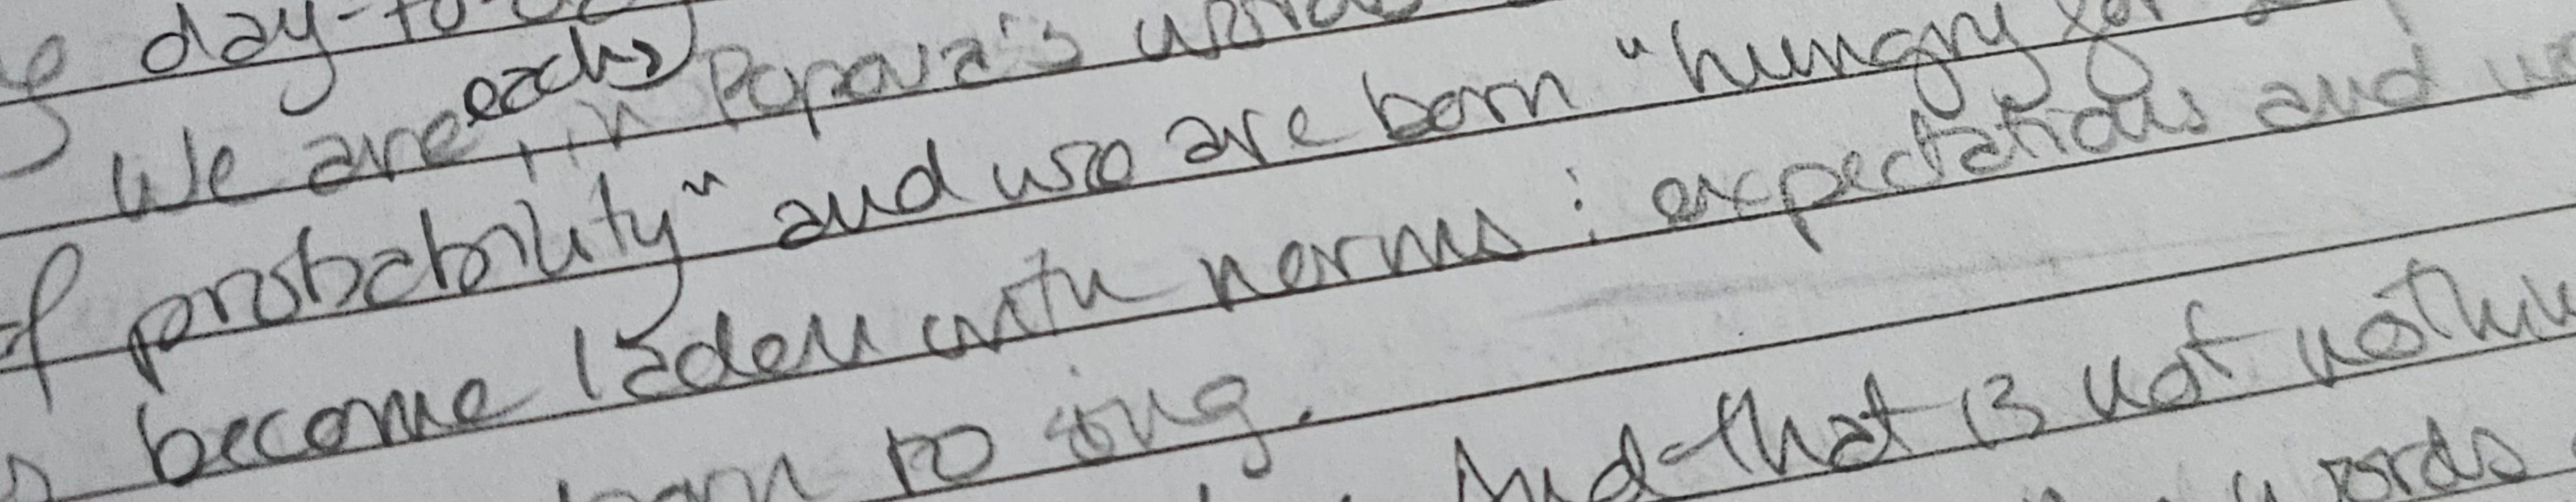 day-to-
We are each, in Popova's
of probability" and we are born "hungry for
become laden with norms: expectations and
to sing.
And that is not
words